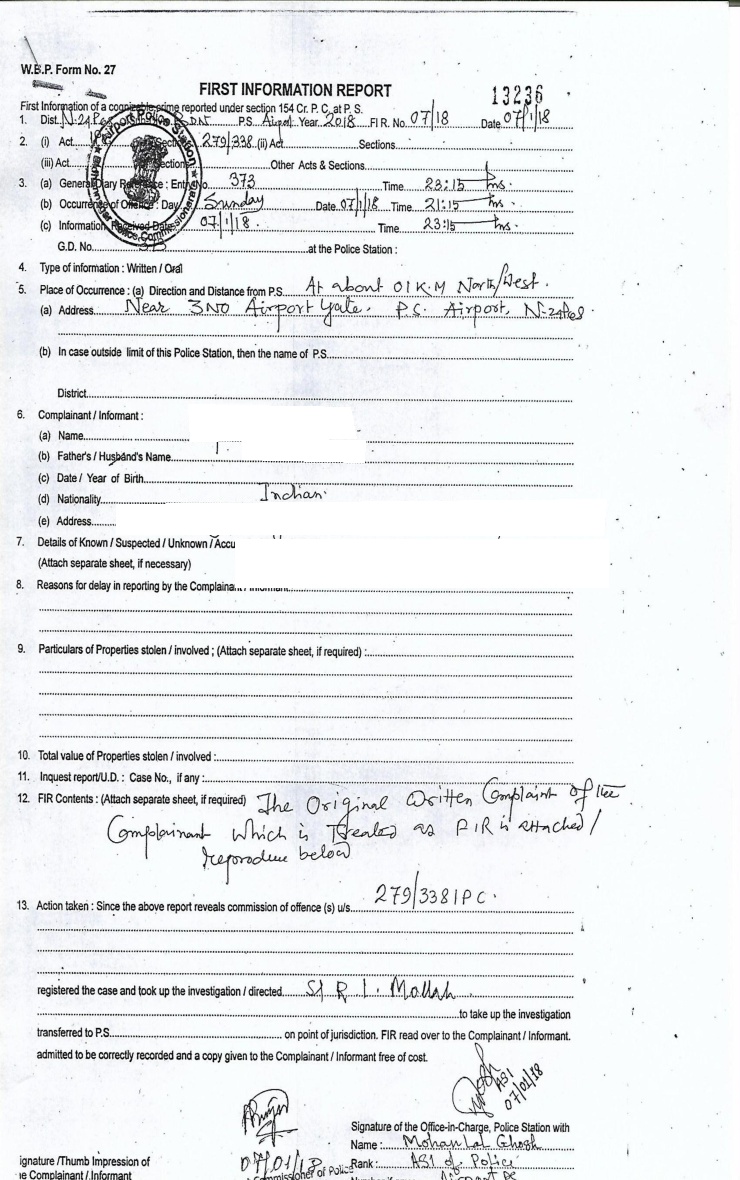 W.B.P. Form No. 27
FIRST INFORMATION REPORT
13236
First Information of a cognizable crime reported under section 154 Cr. P. C. at P. S.
1. Dist. N-24 P.S. Airport Year 2018 FIR. No. 07/18 Date 07/1/18
2. (i) Act 279/338 (ii) Act Sections
(iii) Act Section Other Acts & Sections
3. (a) General Diary Reference : Entry No. 373 Time 23:15 hrs.
(b) Occurrence of Offence : Day Sunday Date 07/1/18 Time 21:15 hrs.
(c) Information Received Date 07/1/18. Time 23:15 hrs.
G.D. No. at the Police Station :
Airport Police Station
Police Commissionerate
4. Type of information : Written / Oral
5. Place of Occurrence : (a) Direction and Distance from P.S. At about 01 K.M North/West.
(a) Address Near 3NO Airport Gate. P.S. Airport, N-24
(b) In case outside limit of this Police Station, then the name of P.S.
District
6. Complainant / Informant :
(a) Name
(b) Father's / Husband's Name
(c) Date / Year of Birth
(d) Nationality Indian
(e) Address
7. Details of Known / Suspected / Unknown / Accu
(Attach separate sheet, if necessary)
8. Reasons for delay in reporting by the Complainant / Informant
9. Particulars of Properties stolen / involved ; (Attach separate sheet, if required) :
10. Total value of Properties stolen / involved :
11. Inquest report/U.D. : Case No., if any :
12. FIR Contents : (Attach separate sheet, if required) The Original Written Complaint of the
Complainant which is Treated as FIR is attached /
reproduce below
13. Action taken : Since the above report reveals commission of offence (s) u/s. 279/338 IPC.
registered the case and took up the investigation / directed SI R. I. Mollah
to take up the investigation
transferred to P.S. on point of jurisdiction. FIR read over to the Complainant / Informant.
admitted to be correctly recorded and a copy given to the Complainant / Informant free of cost.
ASI
07/01/18
Signature of the Office-in-Charge, Police Station with
Name : Mohan Lal Ghosh
ignature /Thumb Impression of 07/01/18 Rank : ASI of Police
he Complainant / Informant